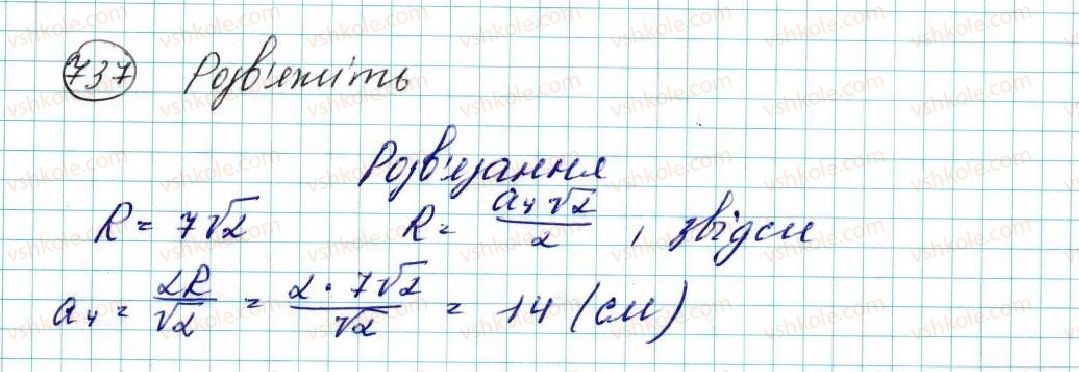 737 Розв'яжіть
Розв'язання
R = 7√2 R = a₄√2/2 , звідси
a₄ = 2R/√2 = 2·7√2/√2 = 14 (см)